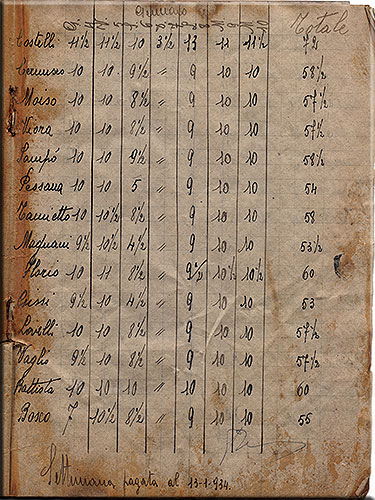 Gennaio
Totale
Costelli 11½ 11½ 10 3½ 13 11 11½ 72
10 10 9½ " 9 10 10 58½
Moiso 10 10 8½ " 9 10 10 57½
Viora 10 10 8½ " 9 10 10 57½
Sampó 10 10 9½ " 9 10 10 58½
Pessana 10 10 5 " 9 10 10 54
10 10½ 8½ " 9 10 10 58
Magnani 9½ 10½ 4½ " 9 10 10 53½
Florio 10 11 8½ " 9½ 10½ 10½ 60
9½ 10 4½ " 9 10 10 53
Lovelli 10 10 8½ " 9 10 10 57½
Vaglio 9½ 10 8½ " 9 10 10 57½
Battista 10 10 10 " 10 10 10 60
Bosco 7 10½ 8½ " 9 10 10 55
Settimana pagata al 13-1-934.